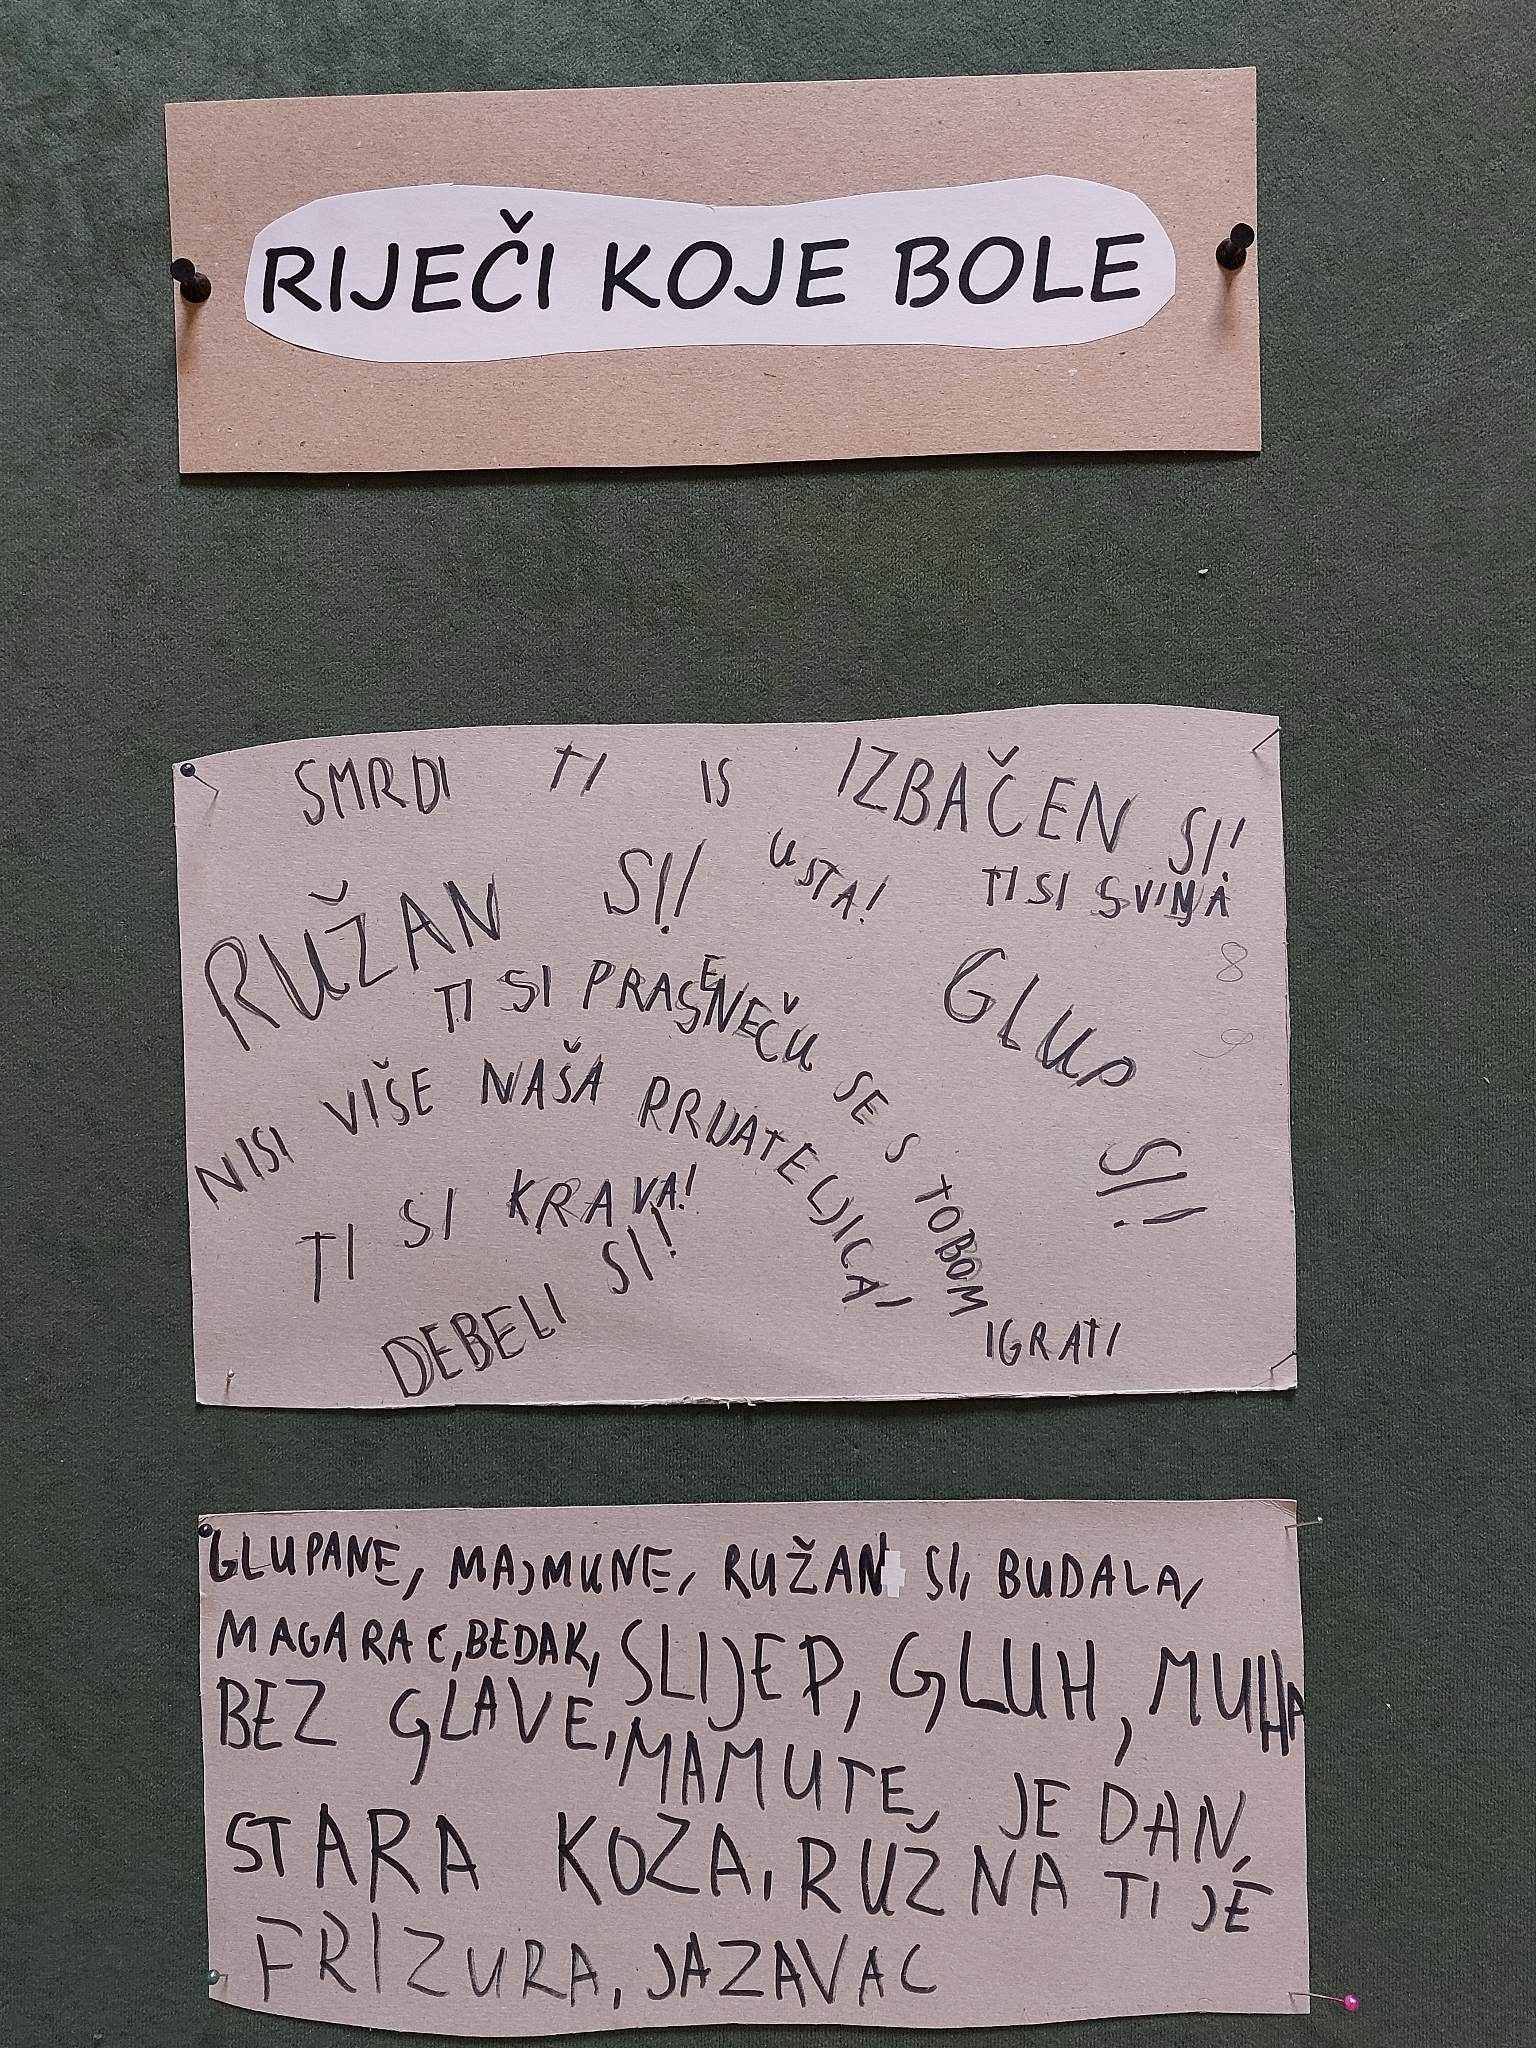 RIJEČI KOJE BOLE
SMRDI TI IS USTA!
IZBAČEN SI!
RUŽAN SI!
TI SI SVINJA
8
9
TI SI PRASE
NEĆU SE S TOBOM IGRATI
GLUP SI!!
NISI VIŠE NAŠA PRIJATELJICA!
TI SI KRAVA!
DEBELI SI!
GLUPANE, MAJMUNE, RUŽAN SI, BUDALA,
MAGARAC, BEDAK, SLIJEP, GLUH, MUHA
BEZ GLAVE, MAMUTE JEDAN,
STARA KOZA, RUŽNA TI JE
FRIZURA, JAZAVAC